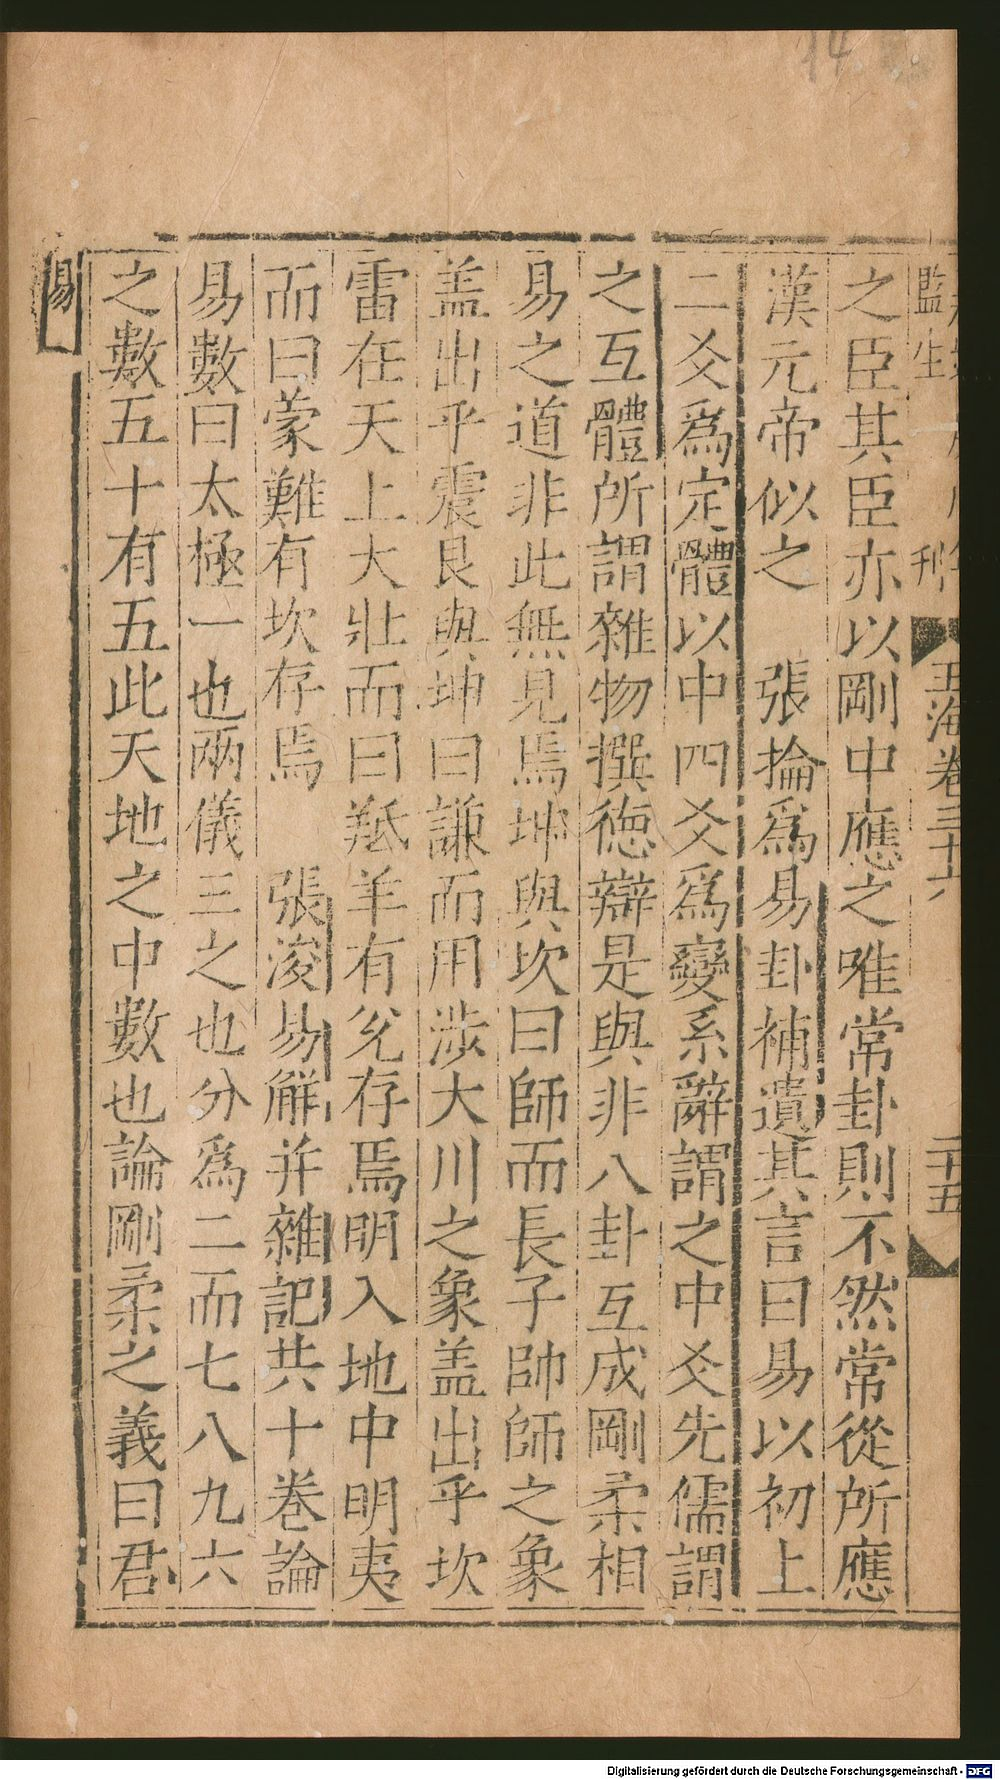 14
監生
刊
玉海卷三十六
二十五
之臣其臣亦以剛中應之唯常卦則不然常從所應
漢元帝似之　張掄爲易卦補遺其言曰易以初上
二爻爲定體以中四爻爲變系辭謂之中爻先儒謂
之互體所謂雜物撰德辯是與非八卦互成剛柔相
易之道非此無見焉坤與坎曰師而長子帥師之象
盖出乎震艮與坤曰謙而用涉大川之象盖出乎坎
雷在天上大壯而曰羝羊有兊存焉明入地中明夷
而曰蒙難有坎存焉　張浚易解并雜記共十巻論
易數曰太極一也兩儀三之也分爲二而七八九六
之數五十有五此天地之中數也論剛柔之義曰君
易
Digitalisierung gefördert durch die Deutsche Forschungsgemeinschaft - DFG